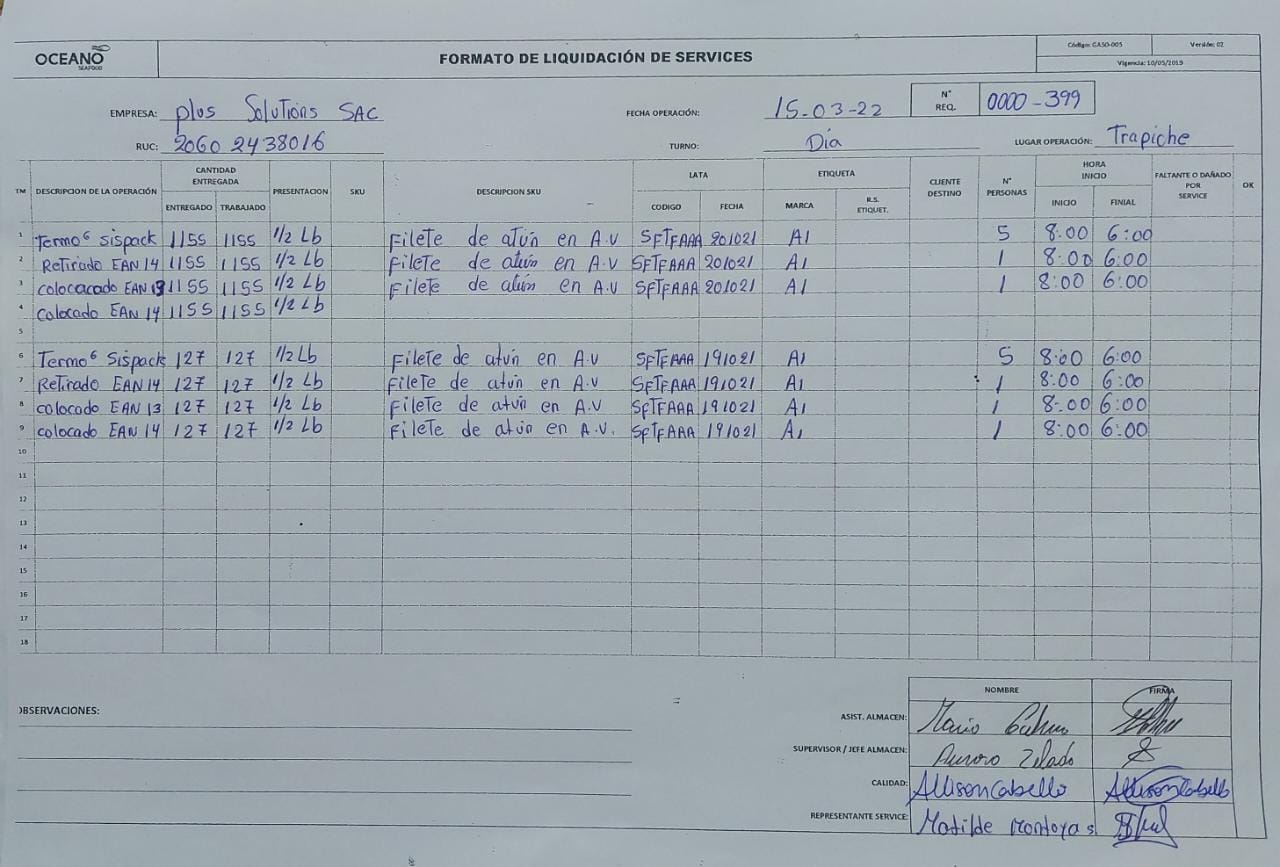 OCEANO
SEAFOOD
FORMATO DE LIQUIDACIÓN DE SERVICES
Código: GASO-005 Versión: 02
Vigencia: 10/05/2019
EMPRESA: plus Solutions SAC FECHA OPERACIÓN: 15-03-22 N° REQ. 0000-399
RUC: 20602438016 TURNO: Día LUGAR OPERACIÓN: Trapiche
TM DESCRIPCION DE LA OPERACIÓN CANTIDAD ENTREGADA PRESENTACION SKU DESCRIPCION SKU LATA ETIQUETA CLIENTE DESTINO N° PERSONAS HORA INICIO FALTANTE O DAÑADO POR SERVICE OK
ENTREGADO TRABAJADO CODIGO FECHA MARCA R.S. ETIQUET. INICIO FINIAL
1 Termo6 sispack 1155 1155 1/2 Lb Filete de atún en A.V SFTFAAA 201021 A1 5 8:00 6:00
2 Retirado EAN 14 1155 1155 1/2 Lb Filete de atún en A.V SFTFAAA 201021 A1 1 8:00 6:00
3 colocacado EAN 13 1155 1155 1/2 Lb Filete de atún en A.V SFTFAAA 201021 A1 1 8:00 6:00
4 Colocado EAN 14 1155 1155 1/2 Lb
5
6 Termo6 Sispack 127 127 1/2 Lb Filete de atún en A.V SFTFAAA 191021 A1 5 8:00 6:00
7 Retirado EAN 14 127 127 1/2 Lb Filete de atún en A.V SFTFAAA 191021 A1 1 8:00 6:00
8 colocado EAN 13 127 127 1/2 Lb Filete de atún en A.V SFTFAAA 191021 A1 1 8:00 6:00
9 colocado EAN 14 127 127 1/2 Lb Filete de atún en A.V. SFTFAAA 191021 A1 1 8:00 6:00
10
11
12
13
14
15
16
17
18
OBSERVACIONES:
NOMBRE FIRMA
ASIST. ALMACEN: Mario
SUPERVISOR / JEFE ALMACEN: Zelado
CALIDAD: Allison Cabello Allison Cabello
REPRESENTANTE SERVICE: Matilde Montoya S